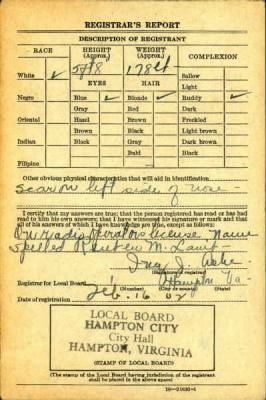 REGISTRAR'S REPORT
DESCRIPTION OF REGISTRANT
RACE HEIGHT (Approx.) WEIGHT (Approx.) COMPLEXION
5ft 8 178
White ✓ Sallow
EYES HAIR Light
Negro Blue ✓ Blonde ✓ Ruddy ✓
Gray Red Dark
Oriental Hazel Brown Freckled
Brown Black Light brown
Indian Black Gray Dark brown
Bald Black
Filipino
Other obvious physical characteristics that will aid in identification
scar on left side of nose -
I certify that my answers are true; that the person registered has read or has had
read to him his own answers; that I have witnessed his signature or mark and that
all of his answers of which I have knowledge are true, except as follows:
On
Name
Spelled M.
(Signature of registrar)
Registrar for Local Board Hampton Va
Date of registration Feb. 16. 42
LOCAL BOARD
HAMPTON CITY
City Hall
HAMPTON, VIRGINIA
(STAMP OF LOCAL BOARD)
(The stamp of the Local Board having jurisdiction of the registrant
shall be placed in the above space)